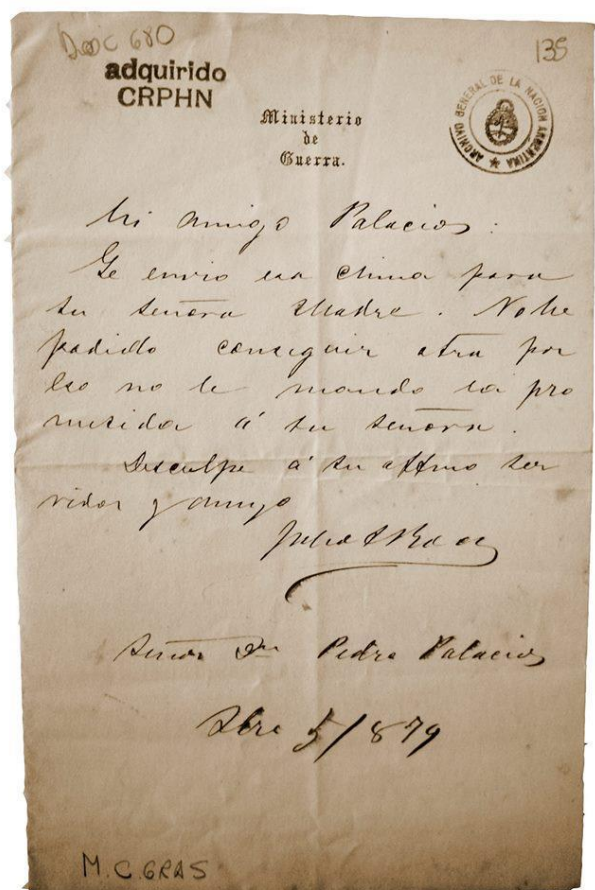 Doc 680
135
adquirido
CRPHN
ARCHIVO GENERAL DE LA NACION ARGENTINA
Ministerio
de
Guerra.
Mi amigo Palacios:
Le envio esa china para
su señora Madre. No he
podido conseguir otra por
eso no le mando la pro
metida á su señora.
Disculpe á su affmo ser
vidor y amigo
Julio A Roca
Señor Dn Pedro Palacios
5/879
M.C.GRAS